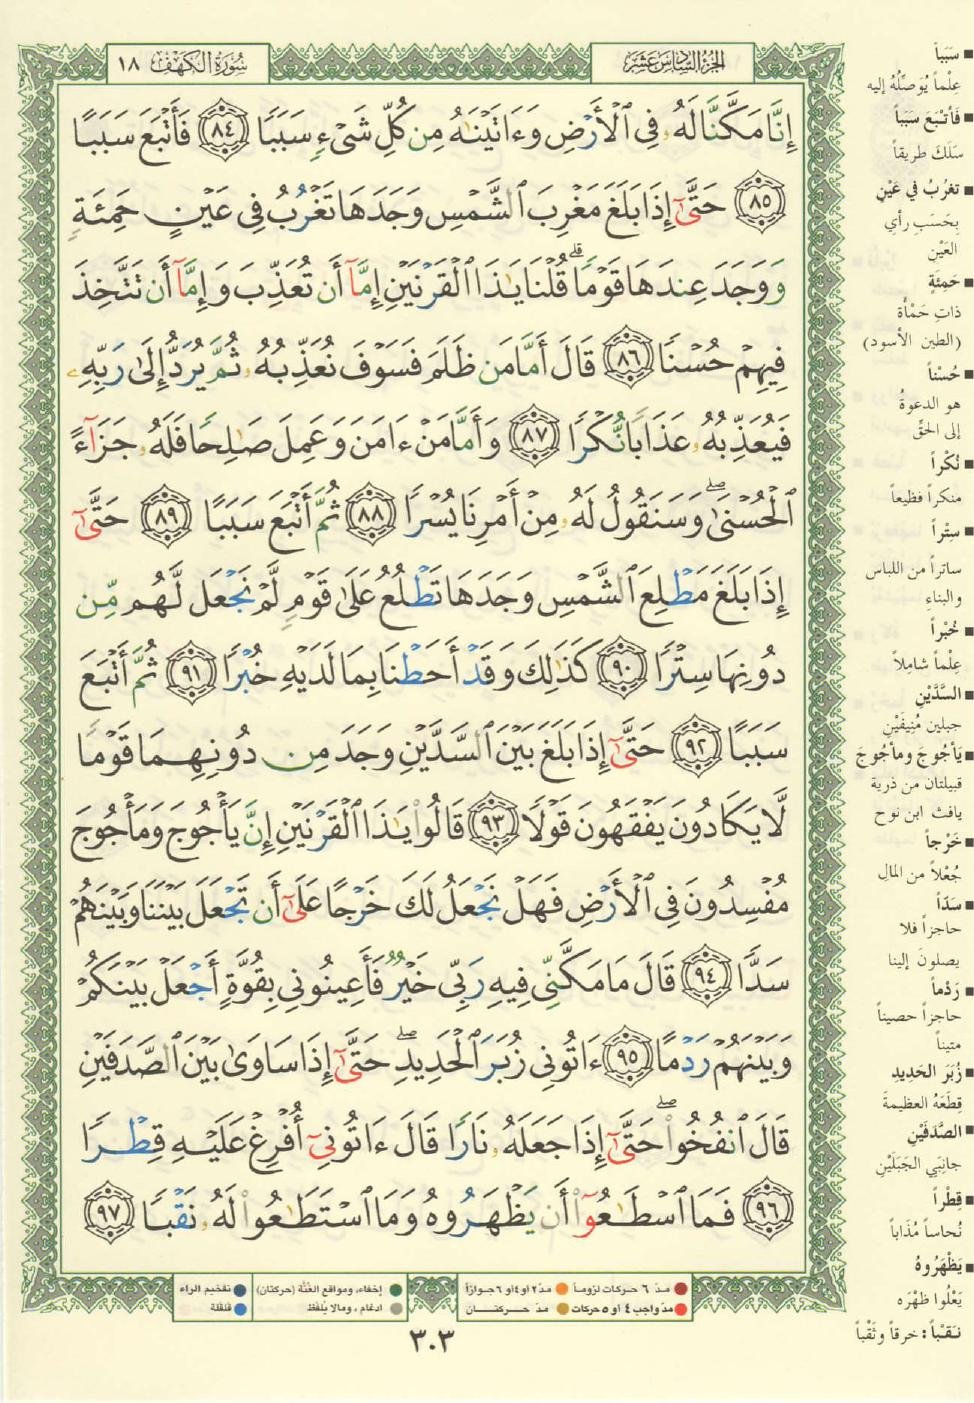 سُورَةُ الكَهْفِ ١٨
الجُزْءُ السَّادِسَ عَشَرَ
إِنَّا مَكَّنَّا لَهُۥ فِى ٱلْأَرْضِ وَءَاتَيْنَـٰهُ مِن كُلِّ شَىْءٍ سَبَبًا ٨٤ فَأَتْبَعَ سَبَبًا
٨٥ حَتَّىٰٓ إِذَا بَلَغَ مَغْرِبَ ٱلشَّمْسِ وَجَدَهَا تَغْرُبُ فِى عَيْنٍ حَمِئَةٍ
وَوَجَدَ عِندَهَا قَوْمًا ۗ قُلْنَا يَـٰذَا ٱلْقَرْنَيْنِ إِمَّآ أَن تُعَذِّبَ وَإِمَّآ أَن تَتَّخِذَ
فِيهِمْ حُسْنًا ٨٦ قَالَ أَمَّا مَن ظَلَمَ فَسَوْفَ نُعَذِّبُهُۥ ثُمَّ يُرَدُّ إِلَىٰ رَبِّهِۦ
فَيُعَذِّبُهُۥ عَذَابًا نُّكْرًا ٨٧ وَأَمَّا مَنْ ءَامَنَ وَعَمِلَ صَـٰلِحًا فَلَهُۥ جَزَآءً
ٱلْحُسْنَىٰ ۖ وَسَنَقُولُ لَهُۥ مِنْ أَمْرِنَا يُسْرًا ٨٨ ثُمَّ أَتْبَعَ سَبَبًا ٨٩ حَتَّىٰٓ
إِذَا بَلَغَ مَطْلِعَ ٱلشَّمْسِ وَجَدَهَا تَطْلُعُ عَلَىٰ قَوْمٍ لَّمْ نَجْعَل لَّهُم مِّن
دُونِهَا سِتْرًا ٩٠ كَذَٰلِكَ وَقَدْ أَحَطْنَا بِمَا لَدَيْهِ خُبْرًا ٩١ ثُمَّ أَتْبَعَ
سَبَبًا ٩٢ حَتَّىٰٓ إِذَا بَلَغَ بَيْنَ ٱلسَّدَّيْنِ وَجَدَ مِن دُونِهِمَا قَوْمًا
لَّا يَكَادُونَ يَفْقَهُونَ قَوْلًا ٩٣ قَالُوا۟ يَـٰذَا ٱلْقَرْنَيْنِ إِنَّ يَأْجُوجَ وَمَأْجُوجَ
مُفْسِدُونَ فِى ٱلْأَرْضِ فَهَلْ نَجْعَلُ لَكَ خَرْجًا عَلَىٰٓ أَن تَجْعَلَ بَيْنَنَا وَبَيْنَهُمْ
سَدًّا ٩٤ قَالَ مَا مَكَّنِّى فِيهِ رَبِّى خَيْرٌ فَأَعِينُونِى بِقُوَّةٍ أَجْعَلْ بَيْنَكُمْ
وَبَيْنَهُمْ رَدْمًا ٩٥ ءَاتُونِى زُبَرَ ٱلْحَدِيدِ ۖ حَتَّىٰٓ إِذَا سَاوَىٰ بَيْنَ ٱلصَّدَفَيْنِ
قَالَ ٱنفُخُوا۟ ۖ حَتَّىٰٓ إِذَا جَعَلَهُۥ نَارًا قَالَ ءَاتُونِىٓ أُفْرِغْ عَلَيْهِ قِطْرًا
٩٦ فَمَا ٱسْطَـٰعُوٓا۟ أَن يَظْهَرُوهُ وَمَا ٱسْتَطَـٰعُوا۟ لَهُۥ نَقْبًا ٩٧
■ سَبَباً
عِلْماً يُوَصِّلُهُ إليه
■ فَأتْبَعَ سَبَباً
سَلَكَ طريقاً
■ تغرُبُ في عَيْنٍ
بِحَسَبِ رأيِ
العَيْنِ
■ حَمِئَةٍ
ذاتِ حَمْأَة
(الطين الأسود)
■ حُسْناً
هو الدعوةُ
إلى الحقِّ
■ نُكْراً
منكراً فظيعاً
■ سِتْراً
ساتراً من اللباس
والبناء
■ خُبْراً
عِلْماً شامِلاً
■ السَّدَّيْنِ
جبلين مُنِيفَيْنِ
■ يَأجُوجَ ومأجُوجَ
قبيلتان من ذرية
يافث ابن نوح
■ خَرْجاً
جُعْلاً من المالِ
■ سَدّاً
حاجزاً فلا
يصلونَ إلينا
■ رَدْماً
حاجزاً حصيناً
متيناً
■ زُبَرَ الحَديدِ
قِطَعَهُ العظيمةَ
■ الصَّدَفَيْنِ
جانِبَي الجَبَلَيْنِ
■ قِطْراً
نُحاساً مُذَاباً
■ يَظْهَرُوهُ
يَعْلُوا ظَهْرَه
نَقْباً : خرقاً وثَقْباً
مدّ ٦ حركات لزوماً مدّ ٢ أو ٤ أو ٦ جوازاً
مدّ واجب ٤ أو ٥ حركات مدّ حركتان
إخفاء، ومواقع الغُنَّة (حركتان) تفخيم الراء
ادغام ، ومالا يُلفَظ قلقلة
٣٠٣